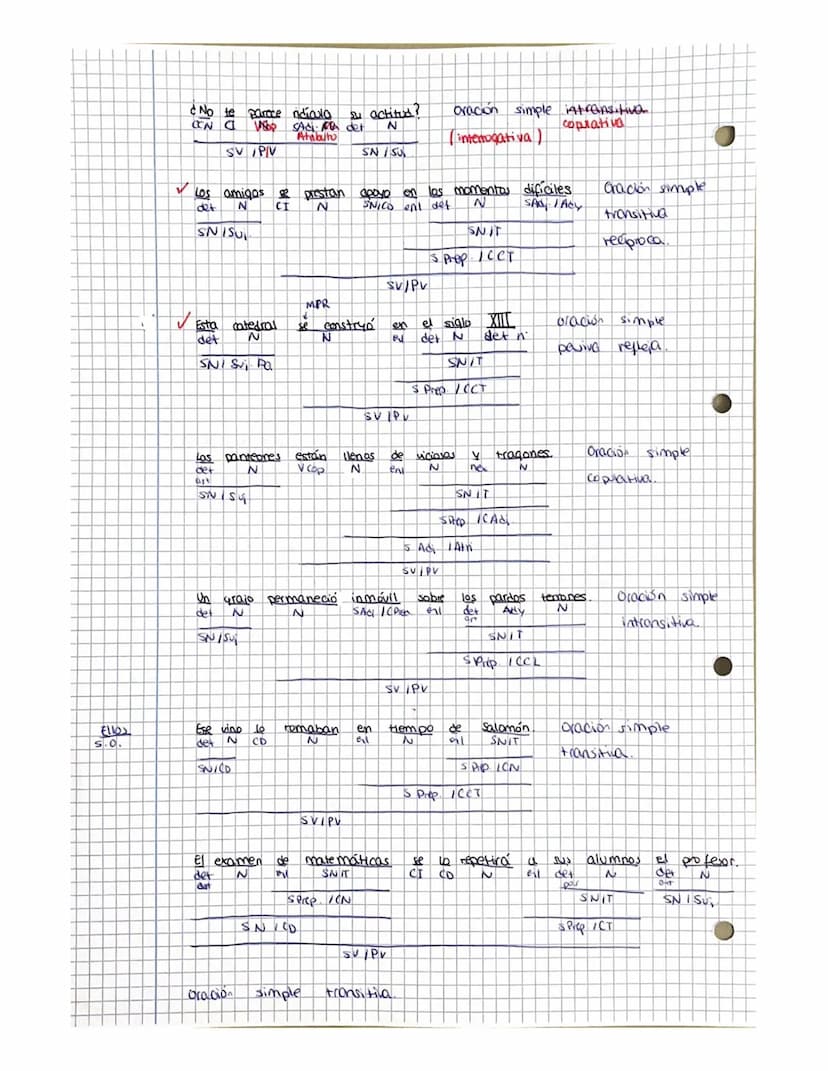 ¿No te parece ridícula su actitud? oración simple intransitiva
CCN CI VCop SAdj. det N copulativa
Atributo (interrogativa)
SV/PV SN/Suj
✓ Los amigos se prestan apoyo en los momentos difíciles Oración simple
det N CI N SN/CD enl det N SAdj/Ady transitiva
SN/Suj SN/T recíproca.
S Prep/CCT
SV/PV
MPR
✓ Esta catedral se construyó en el siglo XIII oración simple
det N N enl det N det n. pasiva refleja.
SN/Suj Pa SN/T
S Prep/CCT
SV/PV
Los panteones están llenos de viciosos y tragones. Oración simple
det N VCop N enl N nex N copulativa.
art
SN/Suj SN/T
SPrep/CAdj
S Adj/Atri
SV/PV
Un grajo permaneció inmóvil sobre los pardos terrones. Oración simple
det N N SAdj/CPred enl det Ady N intransitiva.
art
SN/Suj SN/T
SPrep/CCL
SV/PV
Ellos Ese vino lo tomaban en tiempo de Salomón oración simple
S.O. det N CD N enl N enl SN/T transitiva.
SN/CD SPrep/CN
S Prep./CCT
SV/PV
El examen de matemáticas se lo repetirá a sus alumnos el profesor.
det N enl SN/T CI CD N enl det N det N
art pos art
SPrep./CN SN/T SN/Suj
SN/CD SPrep/CI
SV/PV
Oración simple transitiva.